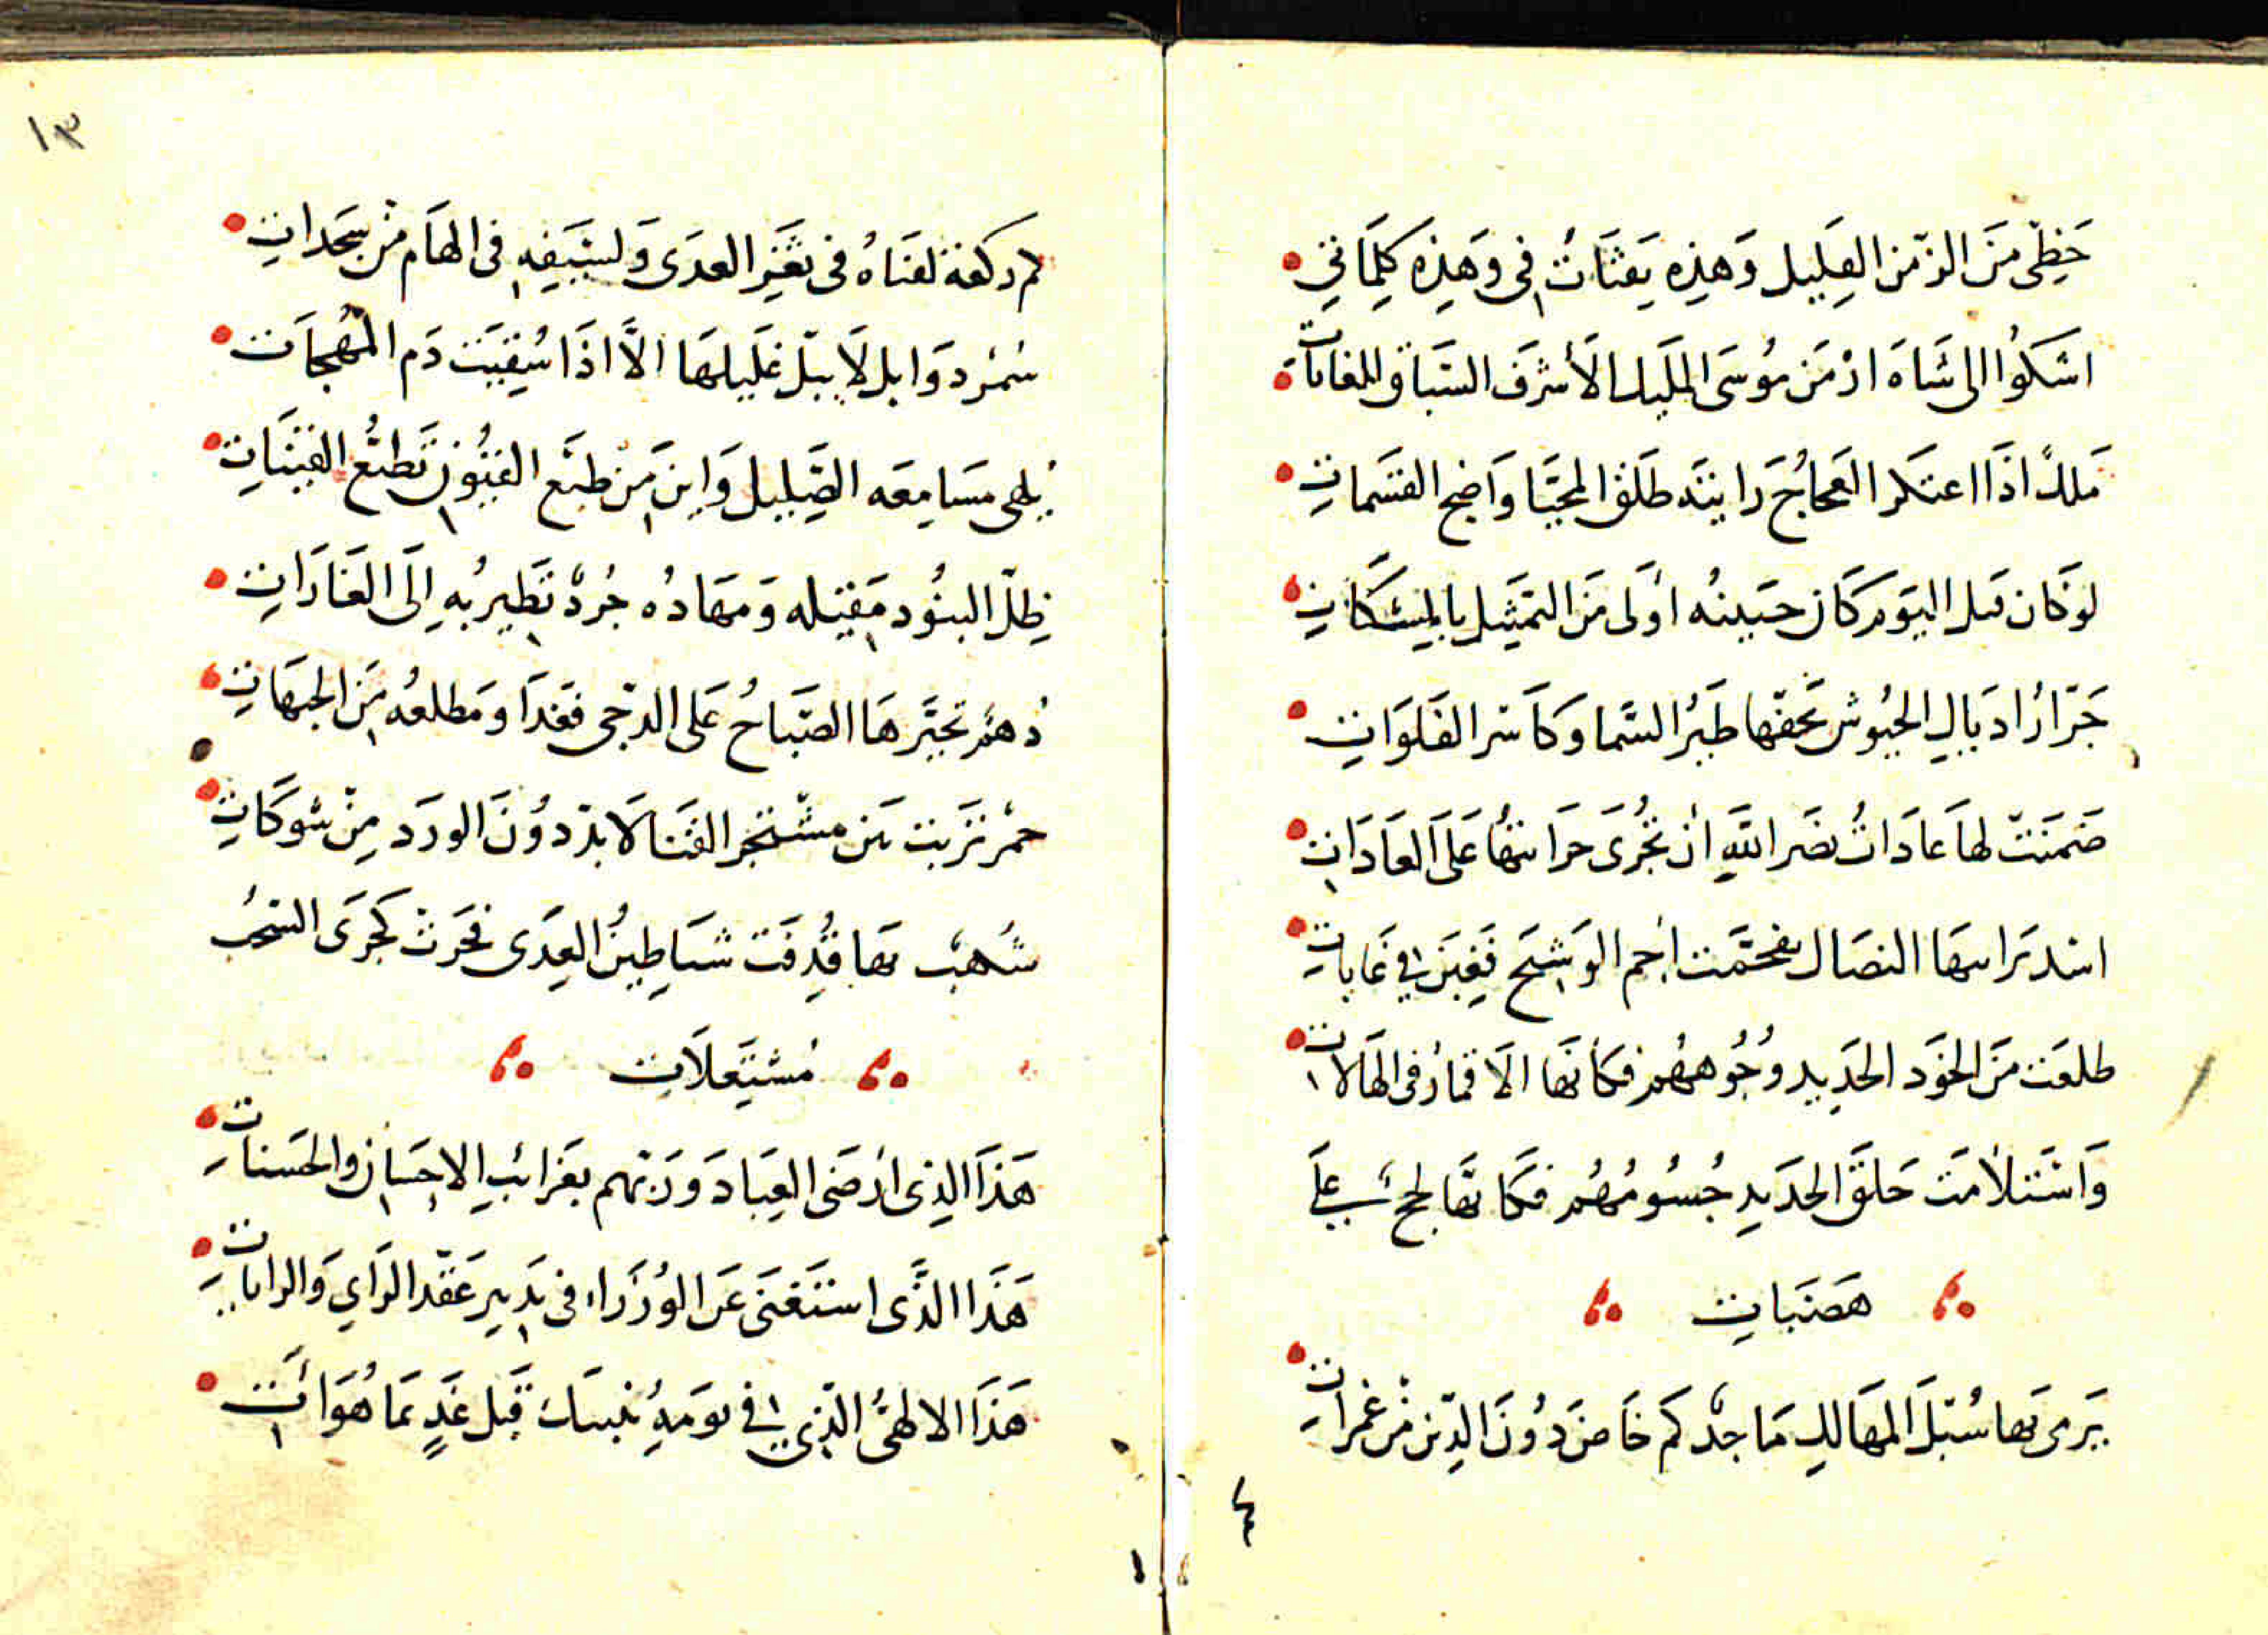 حَظِّى مِنَ الزّمَن القَلِيل وَهَذِه نَفَثَاتُ فِى وَهَذِهِ كَلِمَاتِي
اشكوُا الى شَاه ارْمَن مُوسَى المَلِيك الأَشرَف السَّبَاق للغاياتِ
مَلكٌ اذَا اعتكَر العَجَاجُ رَايتَه طَلقَ المحيَّا وَاضِح القسَماتِ
لَو كَان قبل اليَوم كَان جَبينُه أوْلَى مَنَ التمثيل بالمِشكَاتِ
جَرّارُ اذيَالِ الجيُوش تَحفّها طَيرُ السَّما وَكَاسر الفَلَوَاتِ
ضَمَنَتْ لهَا عَادَاتُ نصَر اللَّهِ ان تُجْرَى جرَايتهُا عَلَى العَادَاتِ
اسْد بَراثنهَا النصَال تقحَّمت اجم الوَشيج فَغِبنَ فِي غَاباتِ
طلعَت مَنَ الخوَذ الحَدِيد وُجُوههُم فكَأنهَا الاَقمارُ فى الهَالاتِ
وَاسْتَلأمَت حَلَقَ الحَدَيدِ جُسُومُهُم فكَانهَا لجج عَلى
هَضَبَاتِ
يَرمى بهَا سُبُلَ المهَالك مَاجدٌ كَم خَاضَ دُونَ الدّين مِنْ غمراتِ
٤
١٣
كم ركعة لقنَاهُ فى ثغَر العدَى وَلسَيفه فى الهَام مِنْ سَجَداتِ
سُمْر ذَوَابل لاَ يبلّ غَليلهَا الاَّ اذَا سُقِيَت دَم المُهجَات
يُلهى مسَامِعَه الصَّليل وَاين مَن طبَع القيُون تَطبُّع القينَاتِ
ظِلّ البنُود مَقيله وَمهَادُه جُردٌ تَطير بهِ اِلَى الغَارَاتِ
دُهْم تخيَّرهَا الصَّبَاحُ عَلى الدجى فَغدَا وَمَطلعُه مِنَ الجبهَاتِ
حمْر تربت بَين مشتجر القنَا لاَ بدّ دوُنَ الورَد مِنْ شَوكَاتِ
شُهبٌ بهَا قُذِفَت شيَاطِينُ العِدَى فجَرَتْ كجَرىَ السُّحُب
مُشتَعِلاَتِ
هَذَا الذِى ارْضَى العِبَادَ وَرَبّهم بغَرائبِ الاِحسَان والحَسَناتِ
هَذَا الَّذى استَغنَى عَن الوُزَرَاءِ فى تدَبيرِ عَقد الرَايِ وَالراياتِ
هَذَا الالهىُّ الذِى فِي يومَهِ يُنبيكَ قَبل غَدٍ بمَا هُوَ اتِ